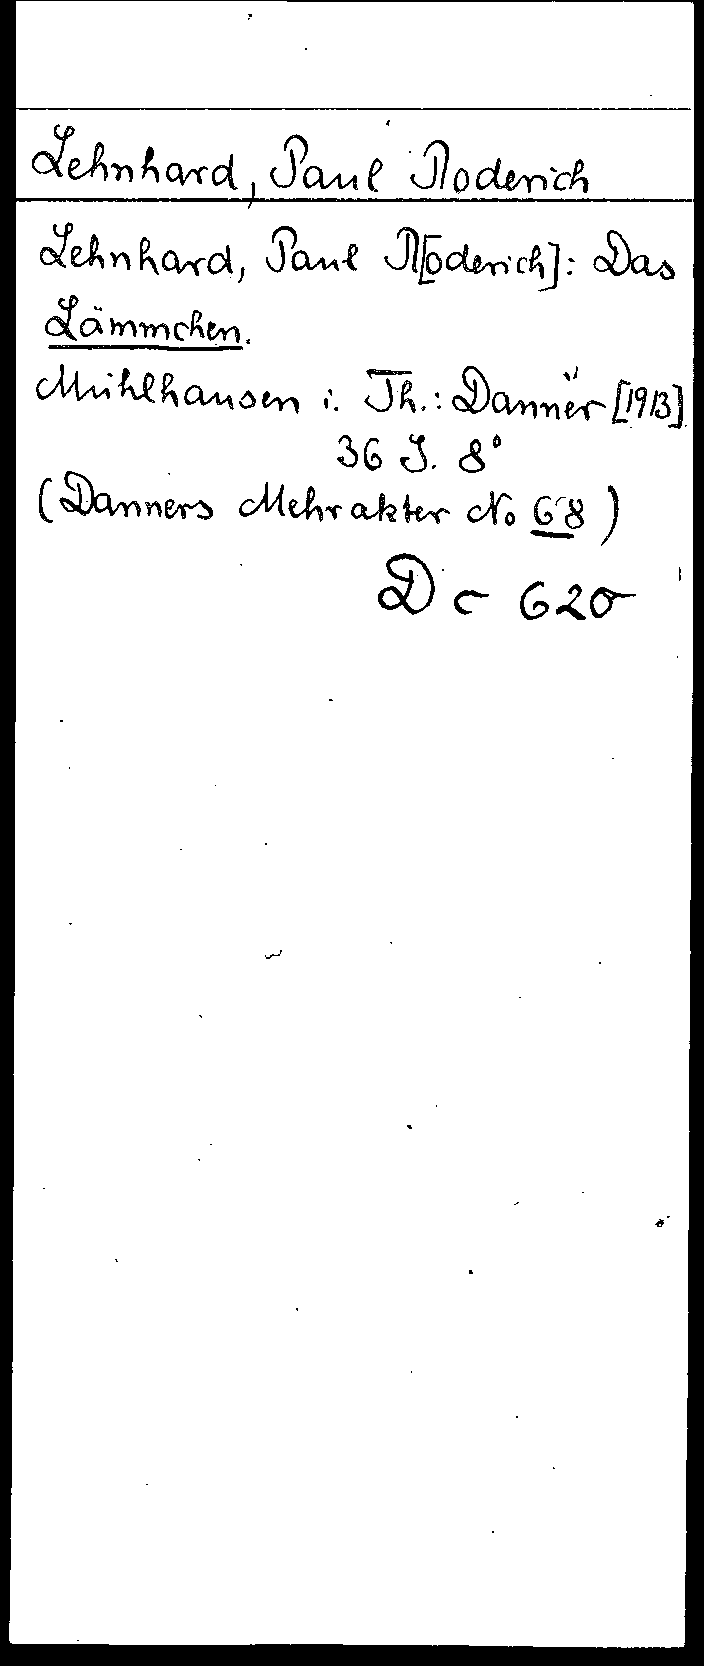 Lehnhard, Paul Roderich
Lehnhard, Paul R[oderich]: Das
Lämmchen.
Mühlhausen i. Th.: Danner [1913]
36 S. 8°
(Danners Mehrakter No 68)
Dc 620